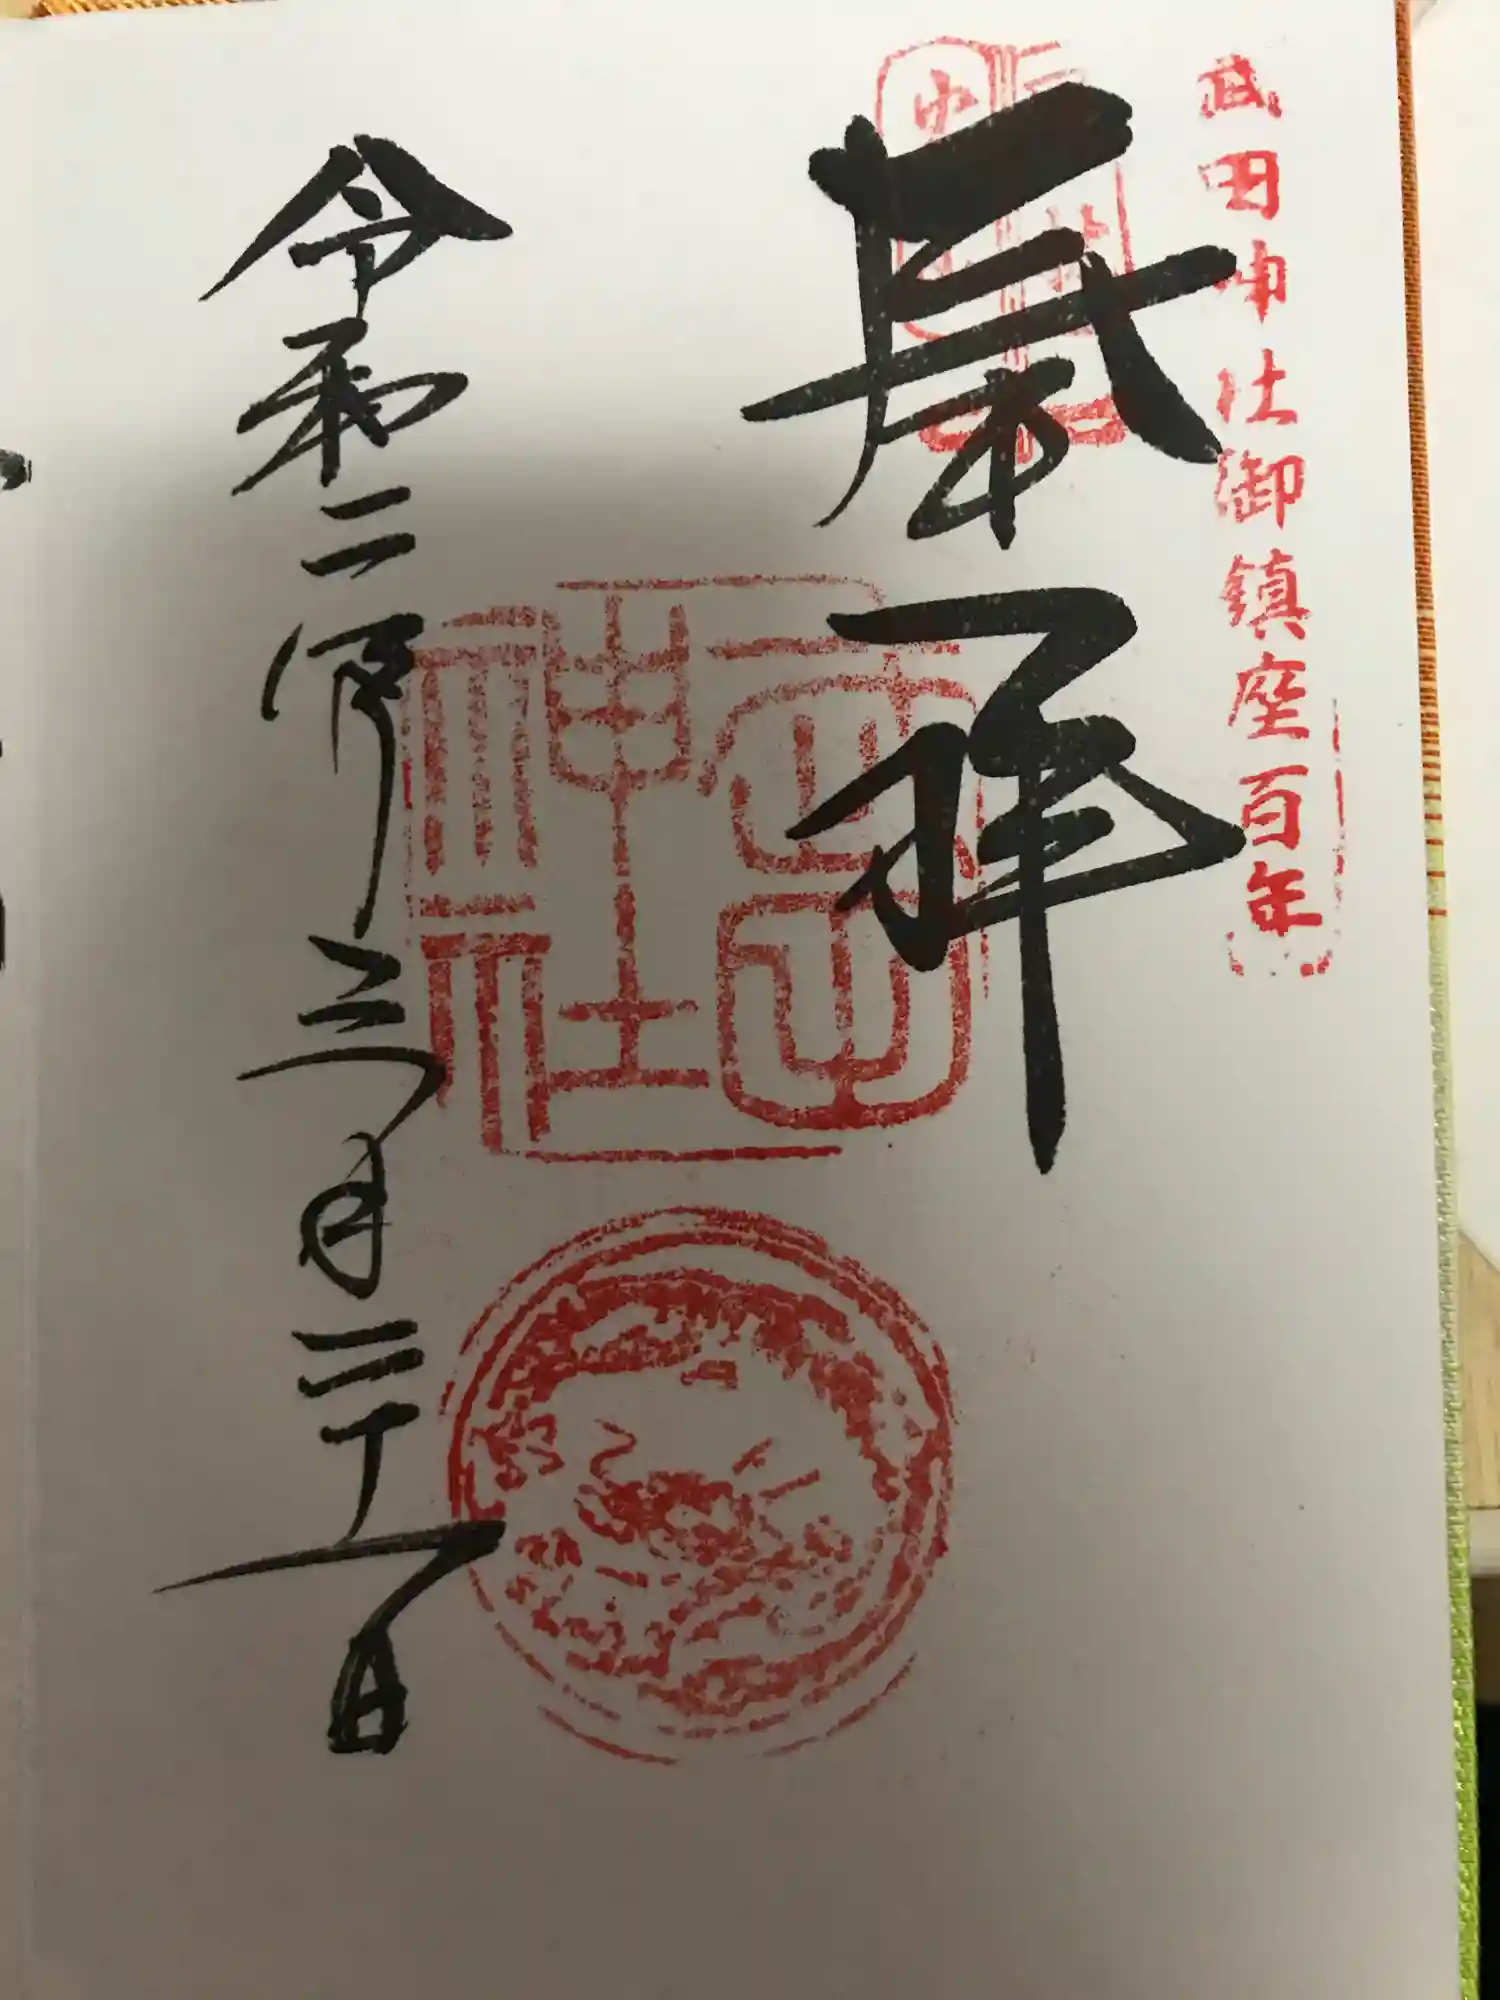 武田神社御鎮座百年
奉拝
武田
神社
令和二年三月二十一日